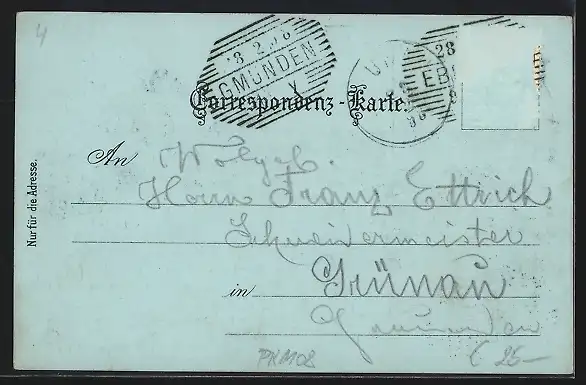 4
3 2 98
GMUNDEN
28
EB
Correspondenz-Karte.
An Wolgeb.
Herrn Franz Ettrich
Schneidermeister
in Grünau
Gmunden
Nur für die Adresse.
PK1108
25-